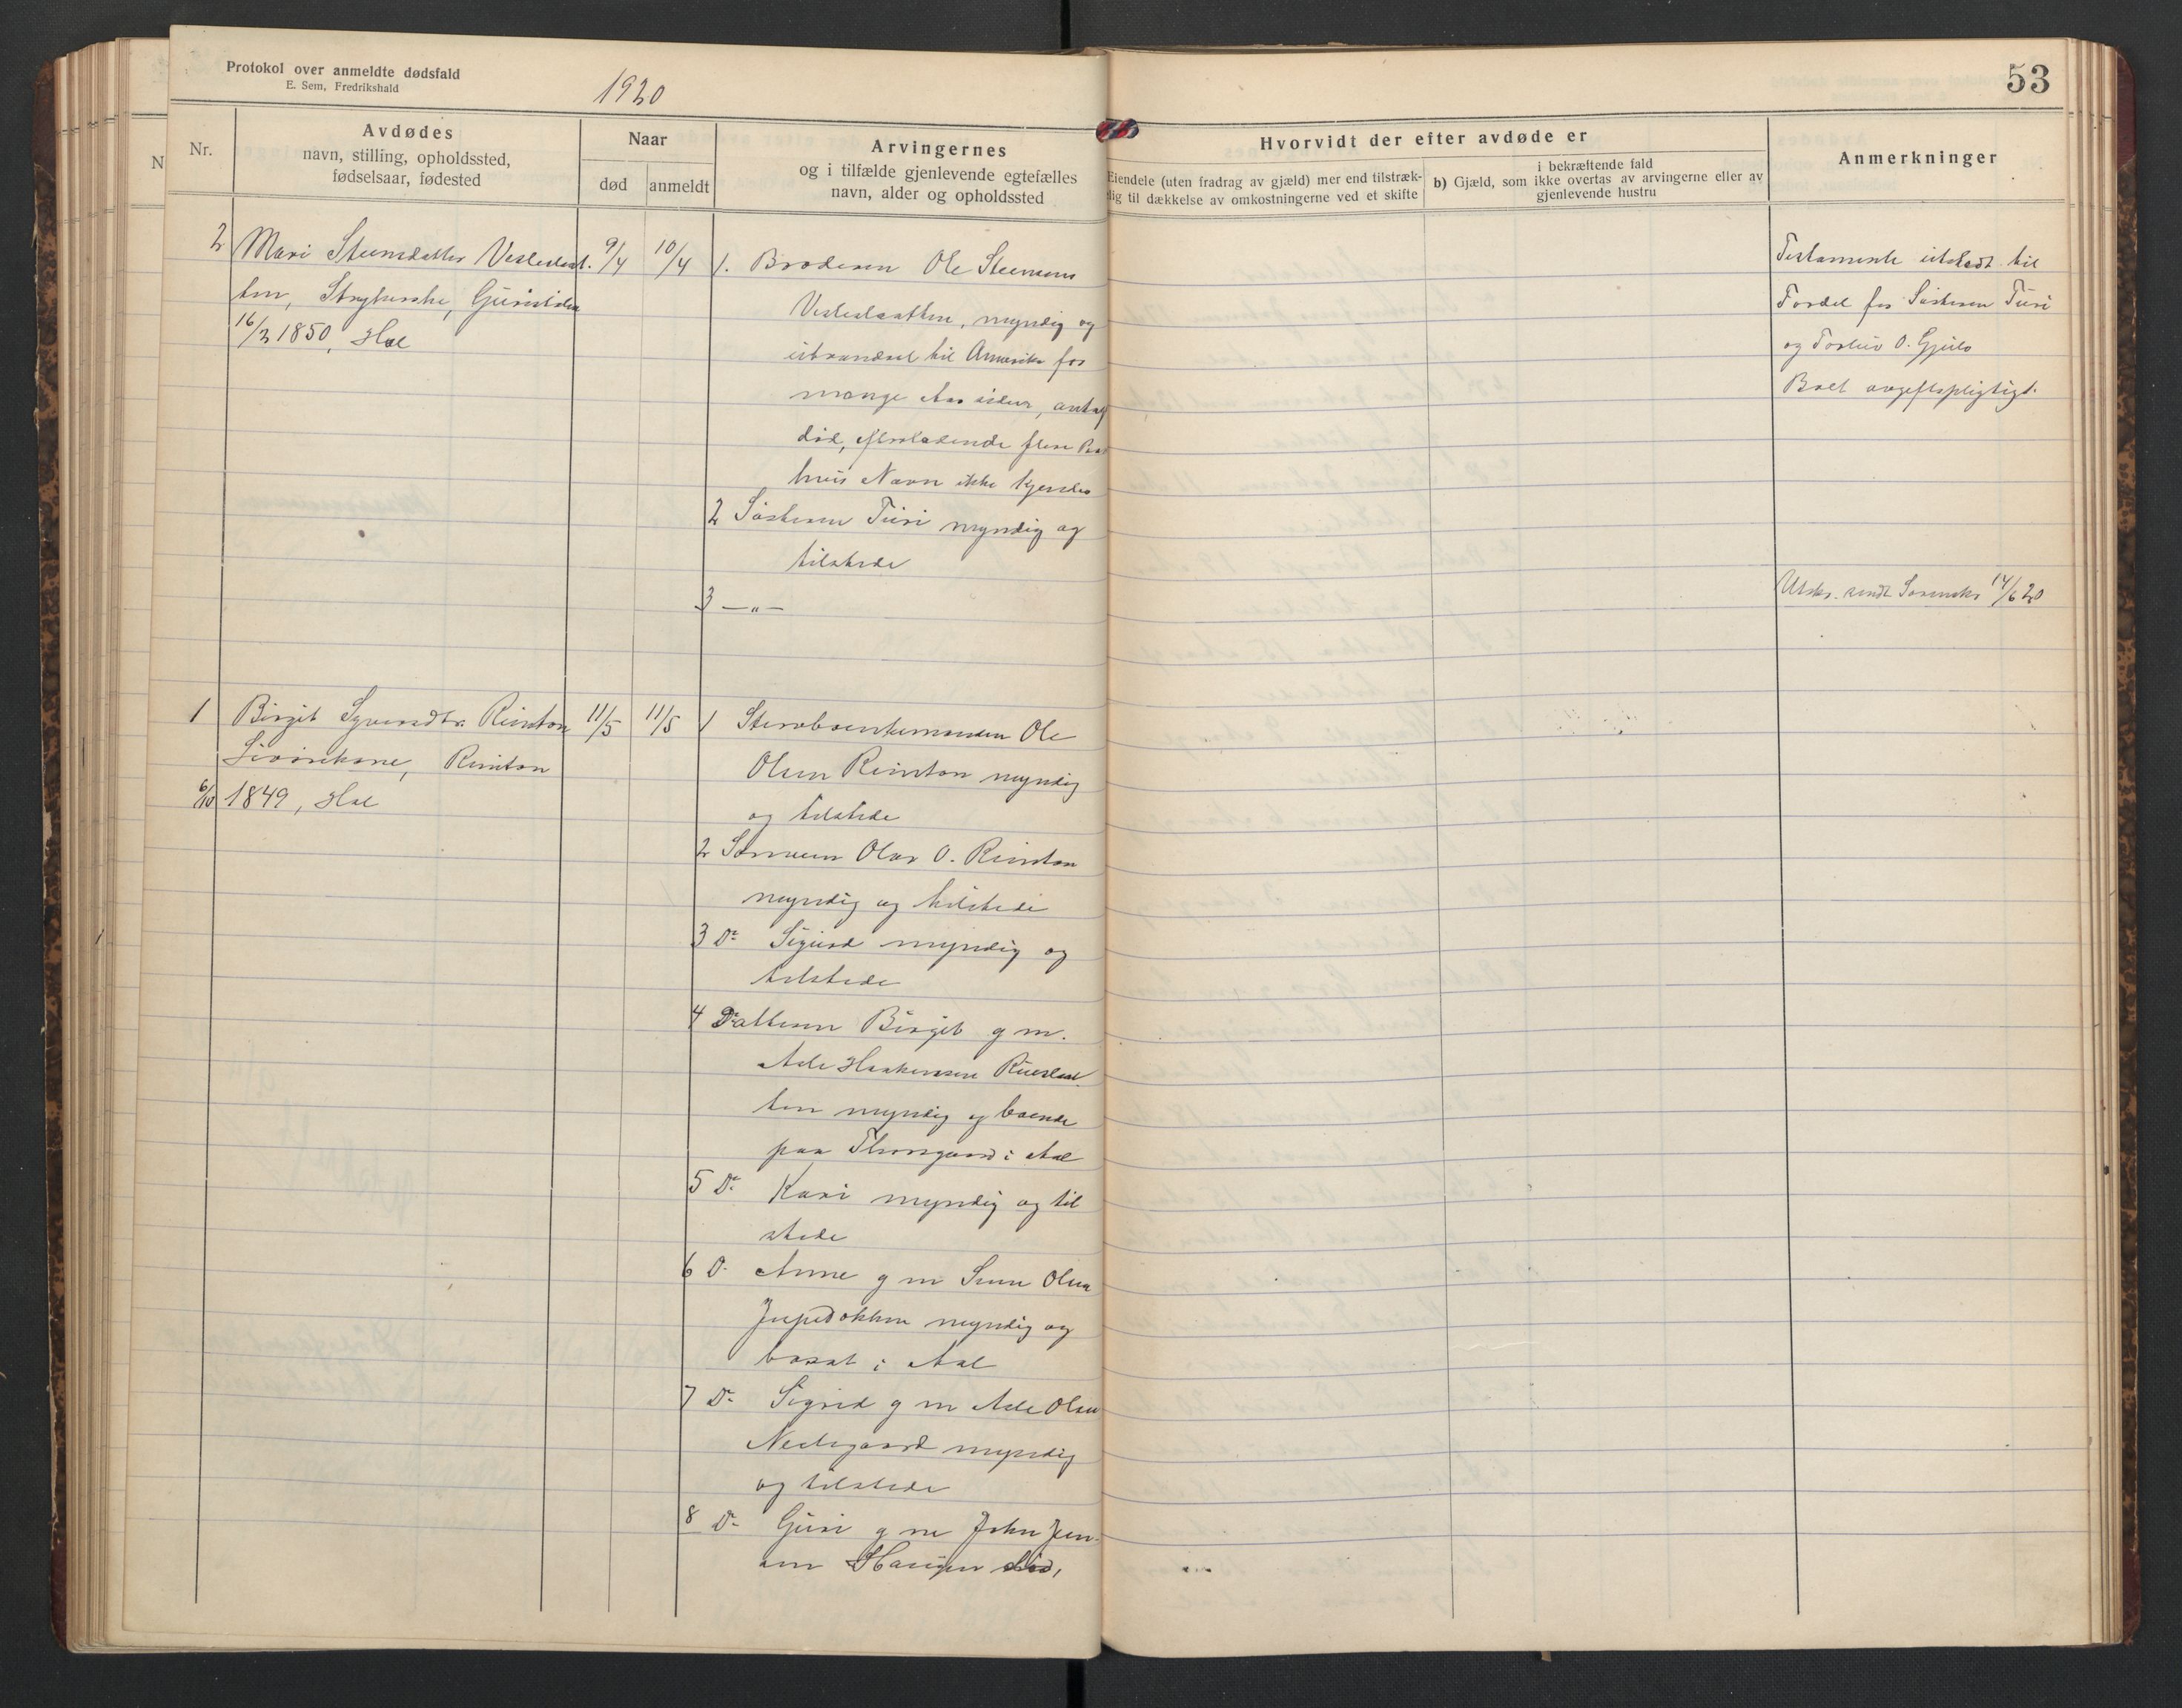 Protokol over anmeldte dødsfald
E. Sem, Fredrikshald
1920
53
Nr.
Avdødes
navn, stilling, opholdssted,
fødselsaar, fødested
Naar
død
anmeldt
Arvingernes
og i tilfælde gjenlevende egtefælles
navn, alder og opholdssted
Hvorvidt der efter avdøde er
Eiendele (uten fradrag av gjæld) mer end tilstræk-
lig til dækkelse av omkostningerne ved et skifte
i bekræftende fald
b) Gjæld, som ikke overtas av arvingerne eller av
gjenlevende hustru
Anmerkninger
2
Mari Steensdatter Vesleslaat-
ten, Strykerske,
16/2 1850, Hol
9/4
10/4
1. Broderen Ole Steensen
Vesleslaatten, myndig og
utvandret til Amerika for
mange Aar siden, antag
død, efterladende flere
hvis Navn ikke kjendes
2 Søsteren Turi myndig og
tilstede
3 —"—
Testamente utstedt til
Fordel for Søsteren Turi
og Torleiv O.
Boet avgiftspligtigt.
Utskr. sendt Sorenskr 14/6 20
1
Birgit Syversdtr. Rimton
Livørekone, Rimton
6/10 1849, Hol
11/5
11/5
1 Stervboenkemanden Ole
Olsen Rimton myndig
og tilstede
2 Sønnen Olav O. Rimton
myndig og tilstede
3 Do Sigurd myndig og
tilstede
4 Datteren Birgit g m.
Asle Haakensen Rueslaat-
ten myndig og boende
paa Thorsgaard i Aal
5 Do Kari myndig og til
stede
6 D. Anne g m Sven Olsen
myndig og
bosat i Aal
7 Do Sigrid g m Asle Olsen
Nedregaard myndig
og tilstede
8 Do Guri g m John Jen-
sen Haugen død,